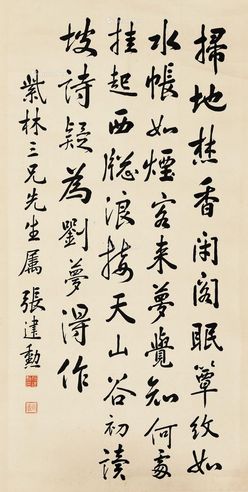 掃地焚香闭閣眠簟紋如
水帳如煙客来夢覺知何處
挂起西牎浪接天山谷初讀
坡詩疑為劉夢得作
紫林三兄先生属 張建勳